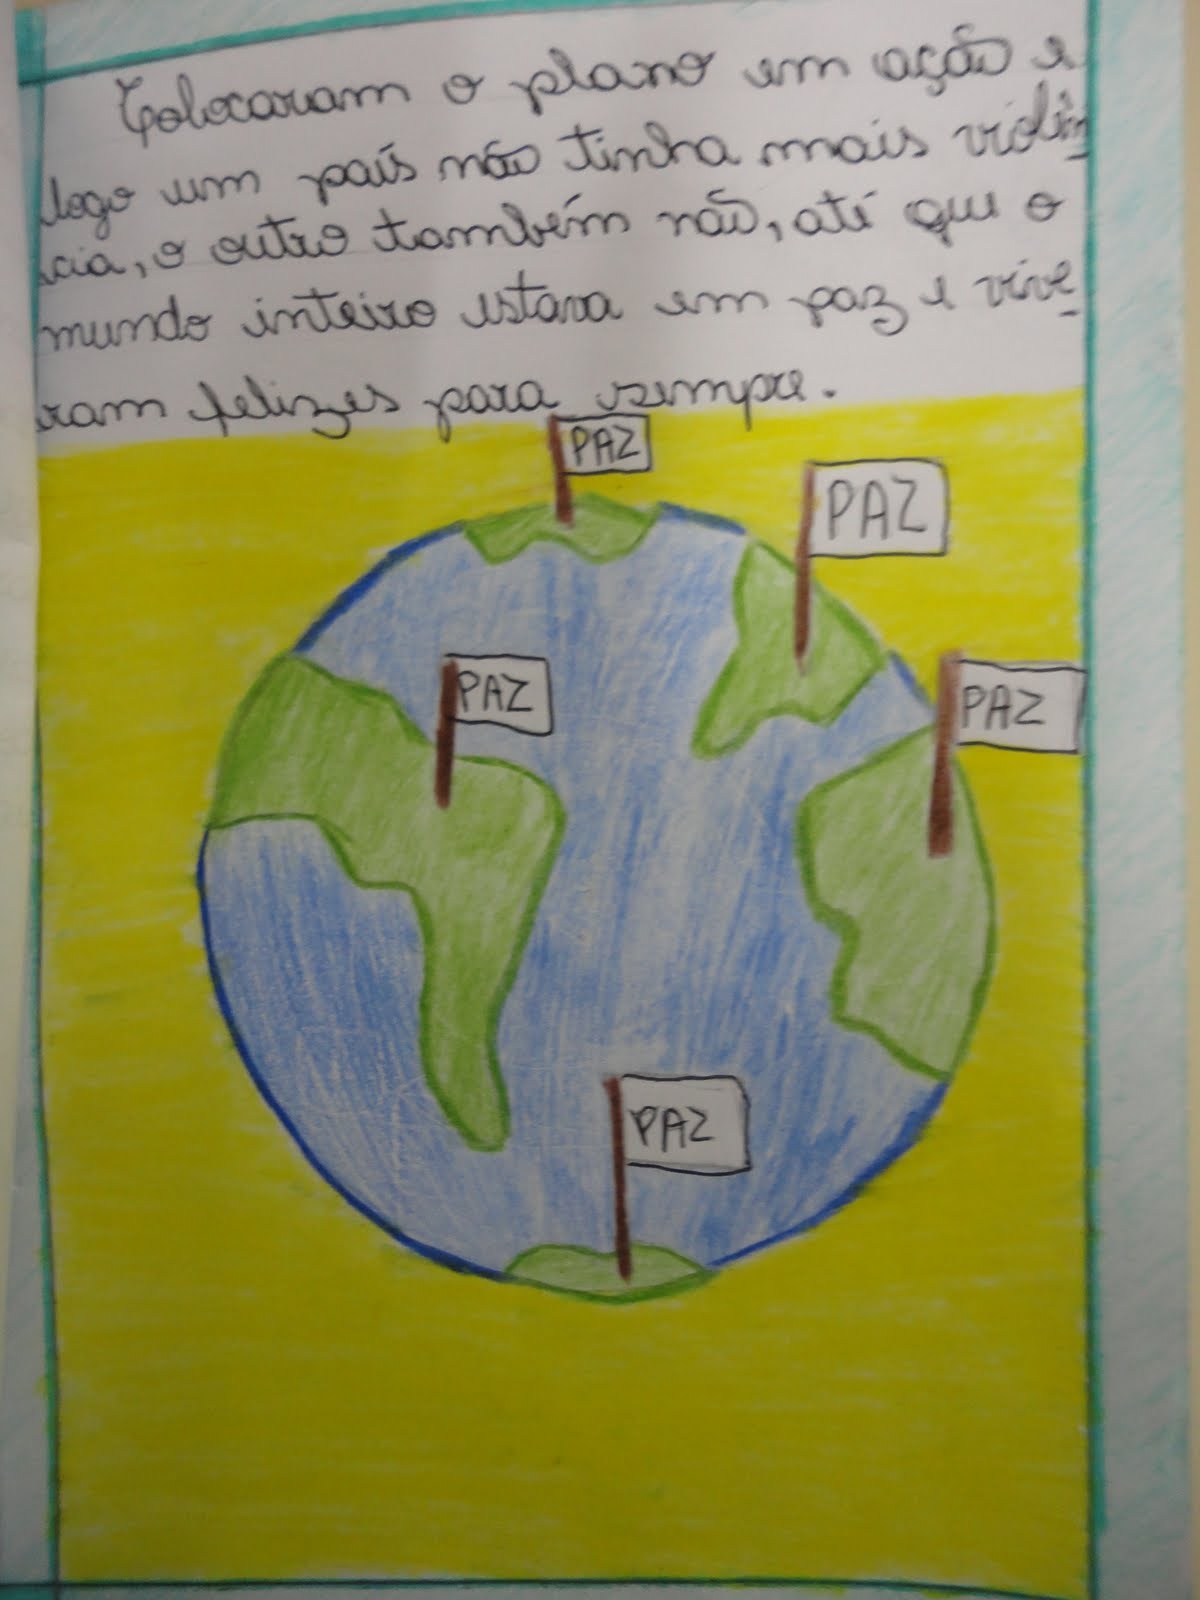 Colocaram o plano em ação e
logo um país não tinha mais violên
cia, o outro também não, até que o
mundo inteiro estava em paz e vive
ram felizes para sempre.
PAZ
PAZ
PAZ
PAZ
PAZ